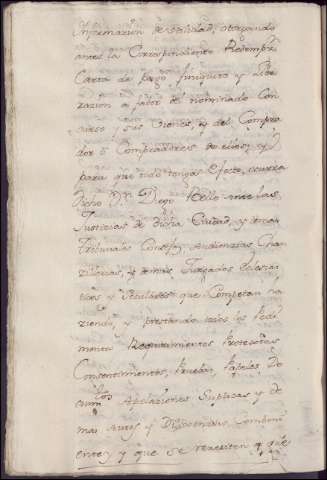 Informacion de utilidad, otorgando
antes la Correspondiente Redempn.
Carta de pago, finiquito y Libe
racion a fabor del nominado Con
curso y sus vienes, y del Compra
dor ô Compradores de ellos; y
para que todo tenga efecto, ocurra
dicho Dn. Diego Bello ante las
Justicias de dicha Ciudad, y demas
Tribunales Consejos Audiencias Chan
zillerias, y demas Juzgados Eclesias
ticos y Seculares que Competan ha
ziendo, y presentando todos los Pedi
mentos Requirimientos Protestas
Consentimientos, Pruebas, Papeles, Do
cumtos. Apelaciones Suplicas y de
mas Autos y Diligencias, Combeni
entes y que se necesiten y que